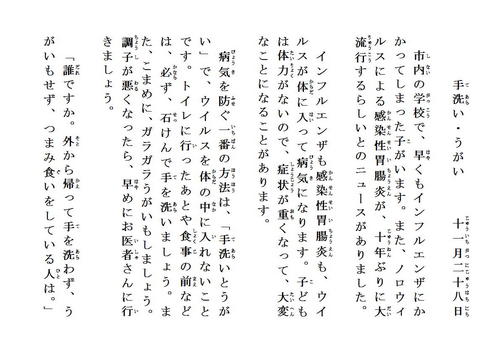 手洗い・うがい　　十一月二十八日
市内の学校で、早くもインフルエンザにか
かってしまった子がいます。また、ノロウィ
ルスによる感染性胃腸炎が、十年ぶりに大
流行するらしいとのニュースがありました。
インフルエンザも感染性胃腸炎も、ウイ
ルスが体に入って病気になります。子ども
は体力がないので、症状が重くなって、大変
なことになることがあります。
病気を防ぐ一番の方法は、「手洗いとうが
い」で、ウイルスを体の中に入れないこと
です。トイレに行ったあとや食事の前など
は、必ず、石けんで手を洗いましょう。ま
た、こまめに、ガラガラうがいもしましょう。
調子が悪くなったら、早めにお医者さんに行
きましょう。
「誰ですか。外から帰って手を洗わず、う
がいもせず、つまみ食いをしている人は。」